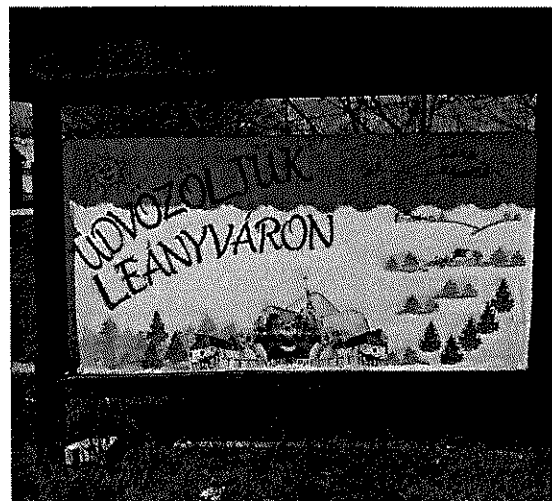 ÜDVÖZÖLJÜK
LEÁNYVÁRON